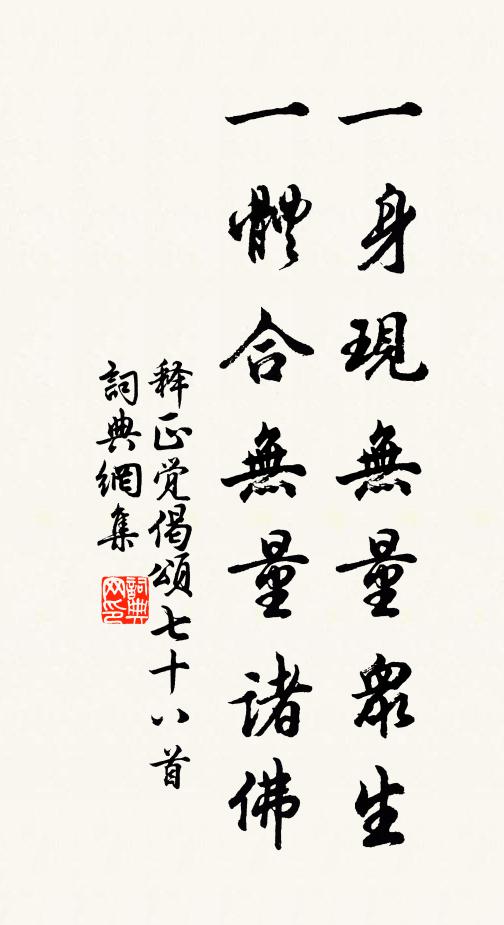 一身現無量衆生
一體合無量諸佛
释正觉偈頌七十八首
詞典網集
詞典
网印